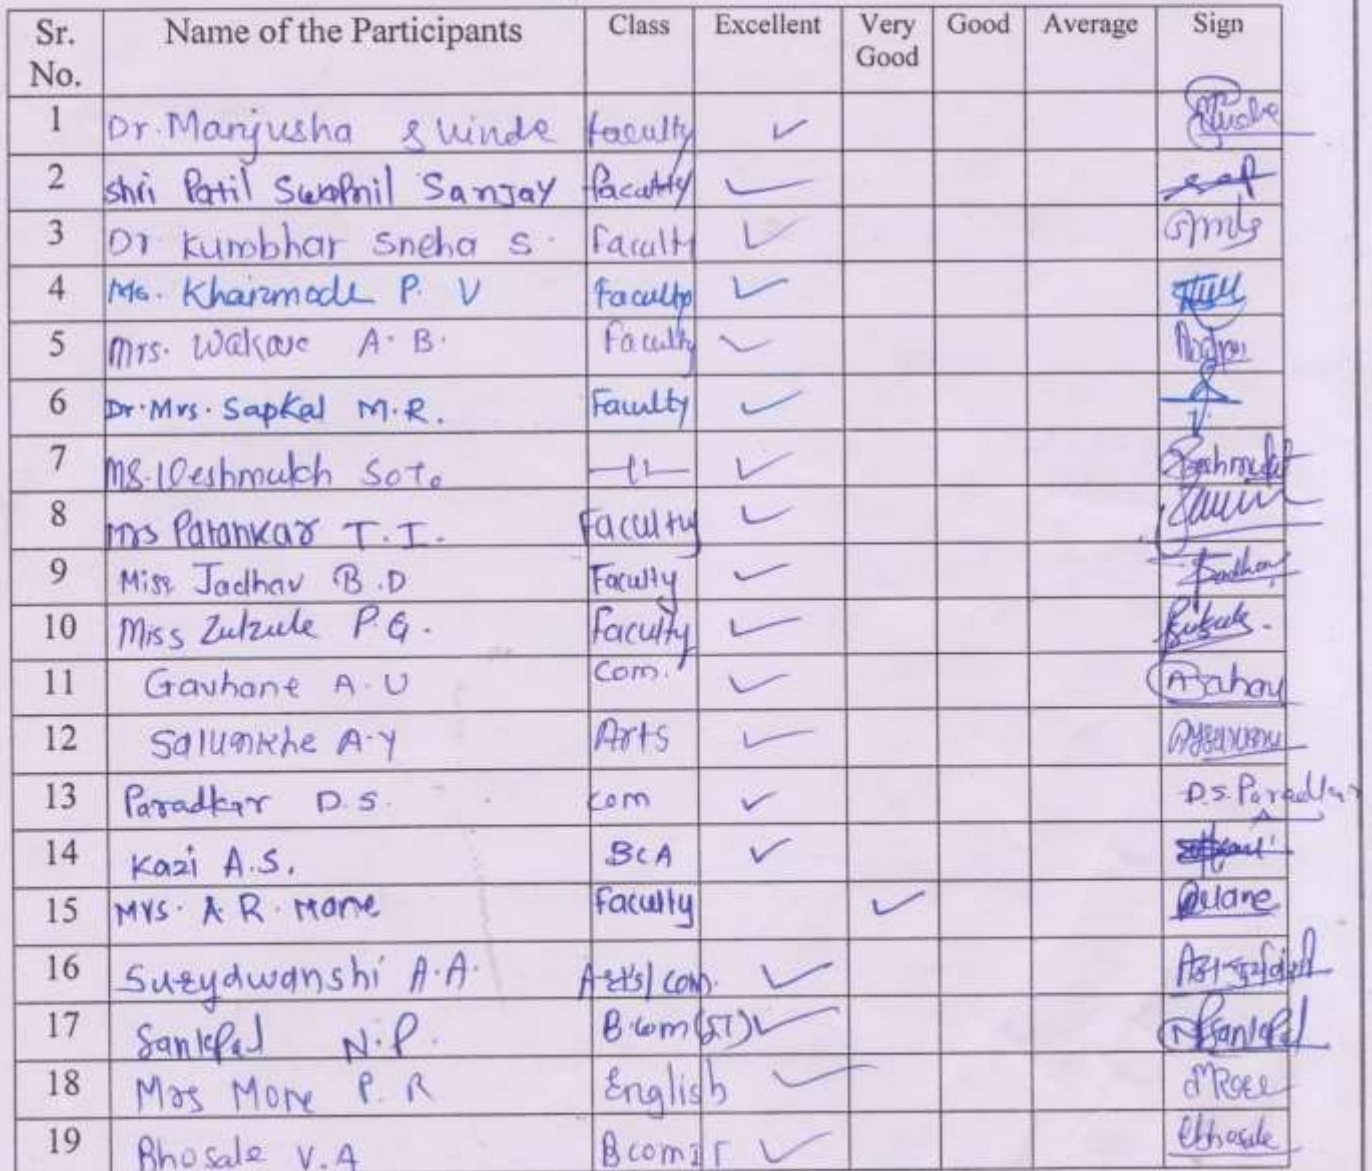 Sr. No. Name of the Participants Class Excellent Very Good Good Average Sign
1 Dr. Manjusha Shinde faculty ✓
2 Shri Patil Swapnil Sanjay faculty ✓
3 Dr Kumbhar Sneha S. Faculty ✓
4 Ms. Khairmode P. V Faculty ✓
5 Mrs. Wakare A. B. Faculty ✓
6 Dr. Mrs. Sapkal M.R. Faculty ✓
7 Ms. Deshmukh —〃— ✓
8 Mrs Patankar T. I. Faculty ✓
9 Miss Jadhav B.D Faculty ✓ Jadhav
10 Miss Zutzule P.G. Faculty ✓
11 Gavhane A.U Com. ✓
12 Salunkhe A-Y Arts ✓
13 Paradkar D.S. com ✓ D.S. Paradkar
14 Kazi A.S. BCA ✓
15 Mrs. A. R. Mane Faculty ✓
16 Suryawanshi A.A. Arts/com. ✓
17 Sankpal N.P. B.com (IT) ✓ NPSankpal
18 Mrs More P. R English ✓
19 Bhosale V.A BcomIT ✓ Bhosale